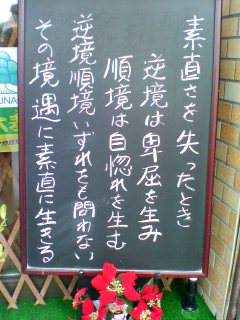 素直さを失ったとき
逆境は卑屈を生み
順境は自惚れを生む
逆境順境いずれをも問わない
その境遇に素直に生きる
UNA